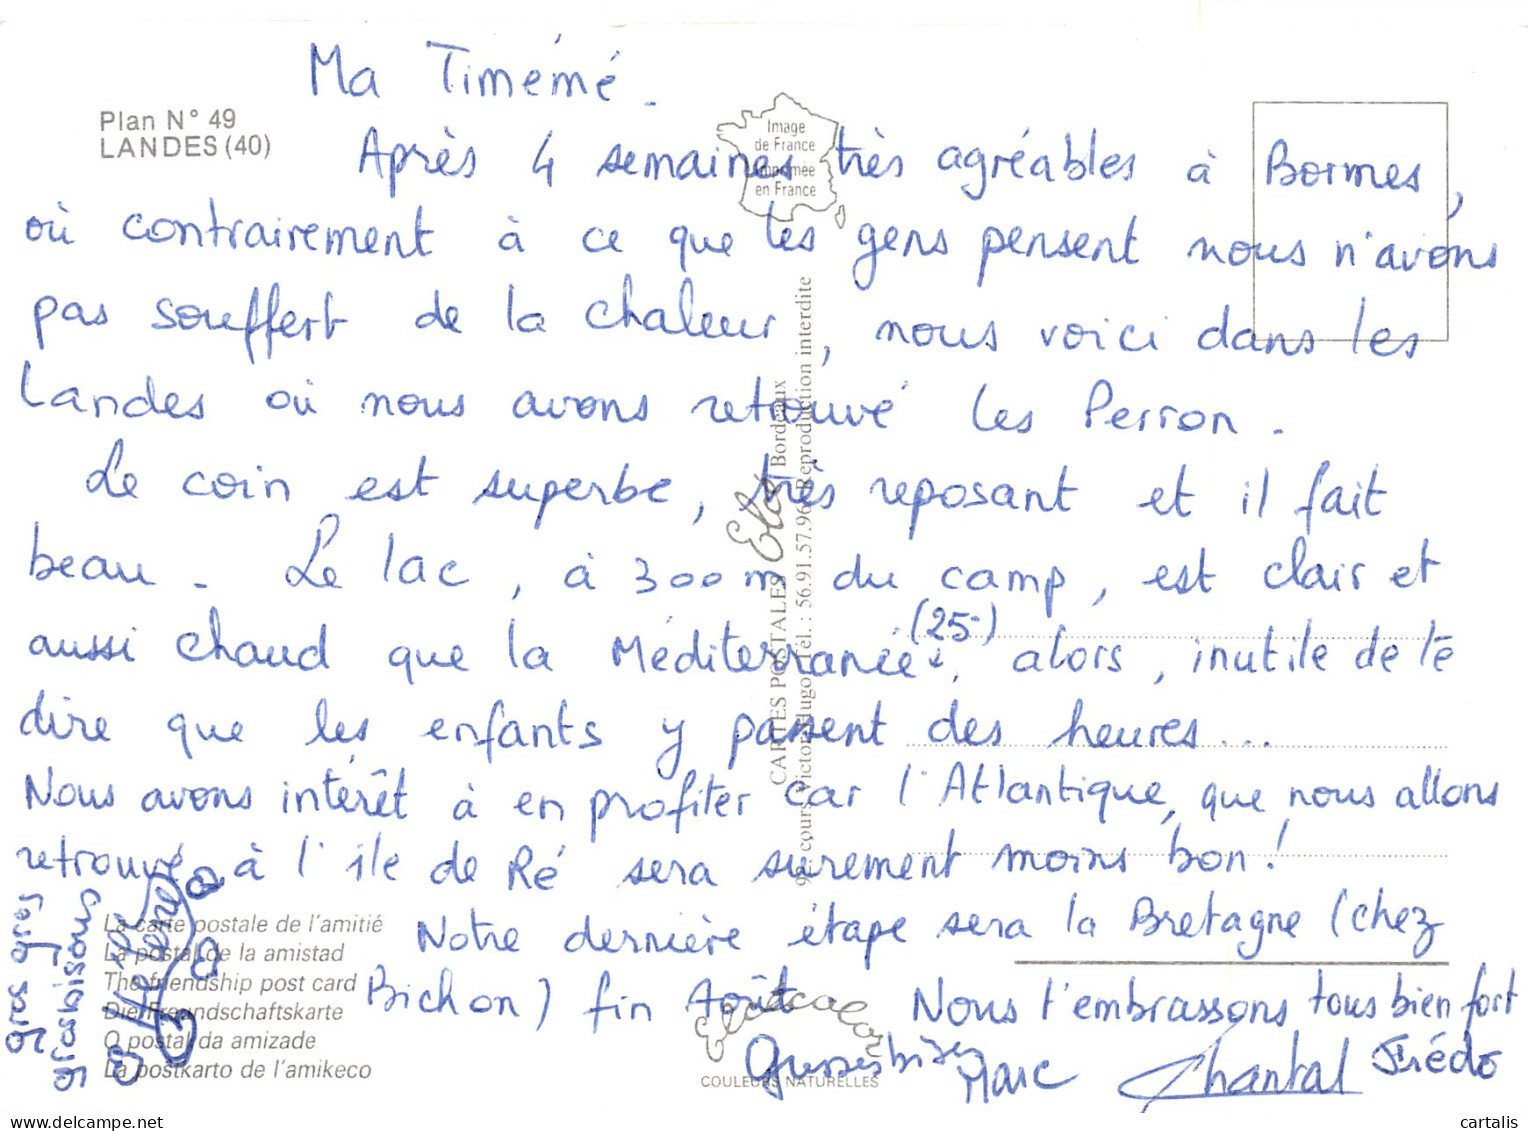 Ma Timémé.
Plan N° 49
LANDES (40)
Image
de France
Imprimée
en France
Après 4 semaines très agréables à Bormes,
où contrairement à ce que les gens pensent nous n'avons
pas souffert de la chaleur, nous voici dans les
Landes où nous avons retrouvé les Perron.
Le coin est superbe, très reposant et il fait
beau. Le lac, à 300 m du camp, est clair et
aussi chaud que la Méditerranée (25°), alors, inutile de te
dire que les enfants y passent des heures...
Nous avons intérêt à en profiter car l'Atlantique, que nous allons
retrouvé à l'île de Ré sera surement moins bon!
Notre dernière étape sera la Bretagne (chez
Bichon) fin Août. Nous t'embrassons tous bien fort
Grosses bises Marc Chantal Frédo
gros gros
grosbisous
Hélène
CARTES POSTALES Elos Bordeaux
cours Victor Hugo Tél.: 56.91.57.96 Reproduction interdite
La carte postale de l'amitié
La postal de la amistad
The friendship post card
Die Freundschaftskarte
O postal da amizade
La postkarto de l'amikeco
Eliotcolor
COULEURS NATURELLES
delcampe.net
cartalis